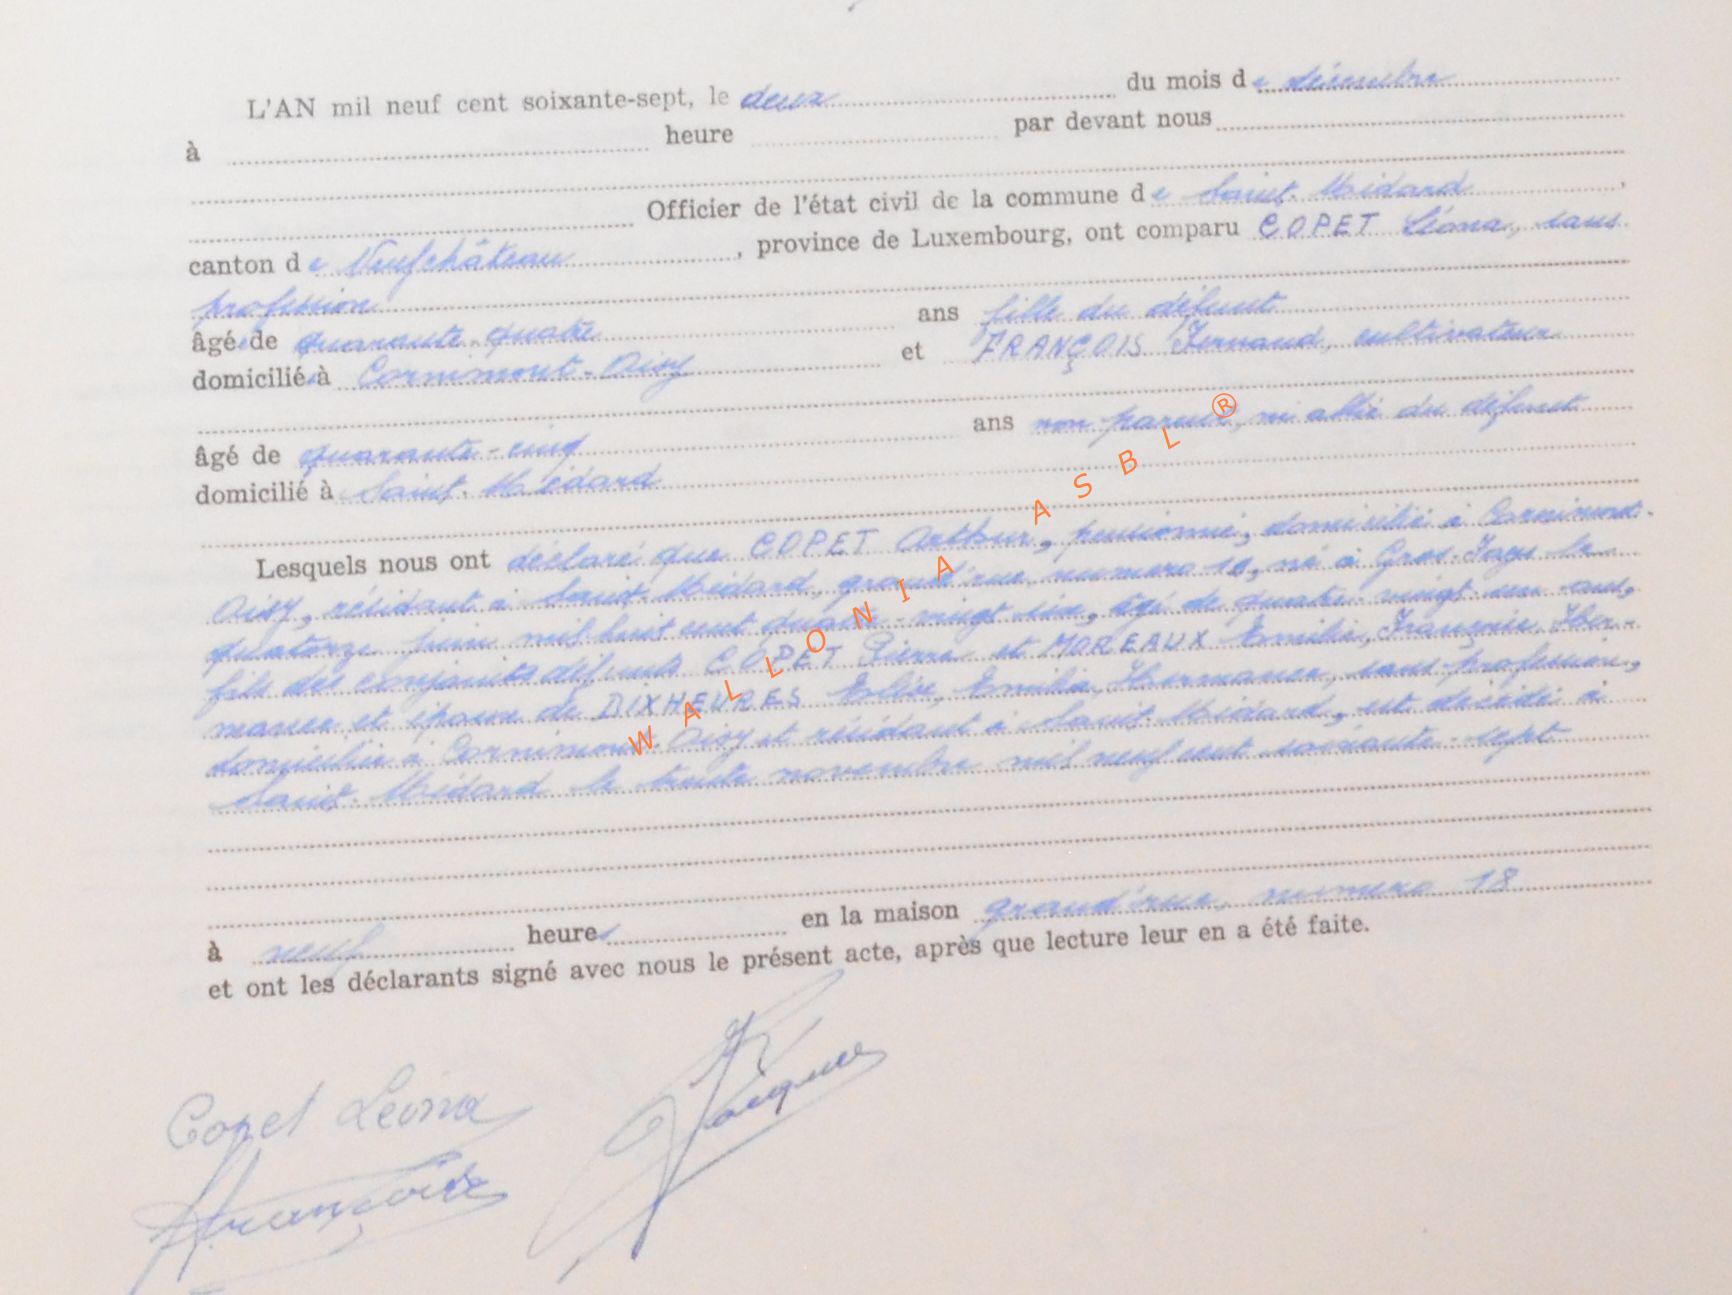 L'AN mil neuf cent soixante-sept, le deux du mois de décembre
à heure par devant nous
Officier de l'état civil de la commune de Saint-Médard,
canton de Neufchâteau, province de Luxembourg, ont comparu COPET Léona, sans
profession
âgée de quarante-quatre ans fille du défunt
domiciliée à Cornimont-Oisy et FRANÇOIS Fernand, cultivateur
âgé de quarante-cinq ans non parent, ni allié du défunt
domicilié à Saint-Médard
Lesquels nous ont déclaré que COPET Arthur, pensionné, domicilié à Cornimont-
Oisy, résidant à Saint-Médard, grand'rue, numéro 18, né à Gros-Fays le
quatorze juin mil huit cent quatre-vingt-six, âgé de quatre-vingt-un ans,
fils des conjoints défunts COPET Pierre et MOREAUX Emilie, Françoise, Her-
mance et époux de DIXHEURES Elise, Emilia, Hermance, sans profession,
domiciliée à Cornimont-Oisy et résidant à Saint-Médard, est décédé à
Saint-Médard le trente novembre mil neuf cent soixante-sept
à neuf heures en la maison grand'rue, numéro 18
et ont les déclarants signé avec nous le présent acte, après que lecture leur en a été faite.
Copet Léona
Jacques
François
WALLONIA ASBL®